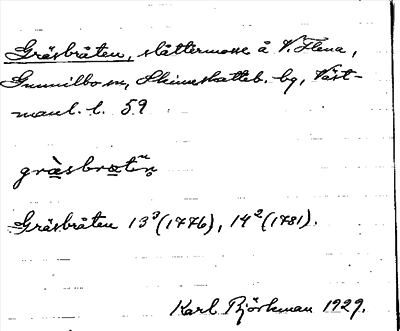 Gräsbråten, slåttermosse å V. Flena,
Gunnilbo sn, Skinnskatteb. bg, Väst-
manl. l. 59
gräsbråtɐn
Gräsbråten 13³ (1776), 14² (1781).
Karl Björkman 1929.